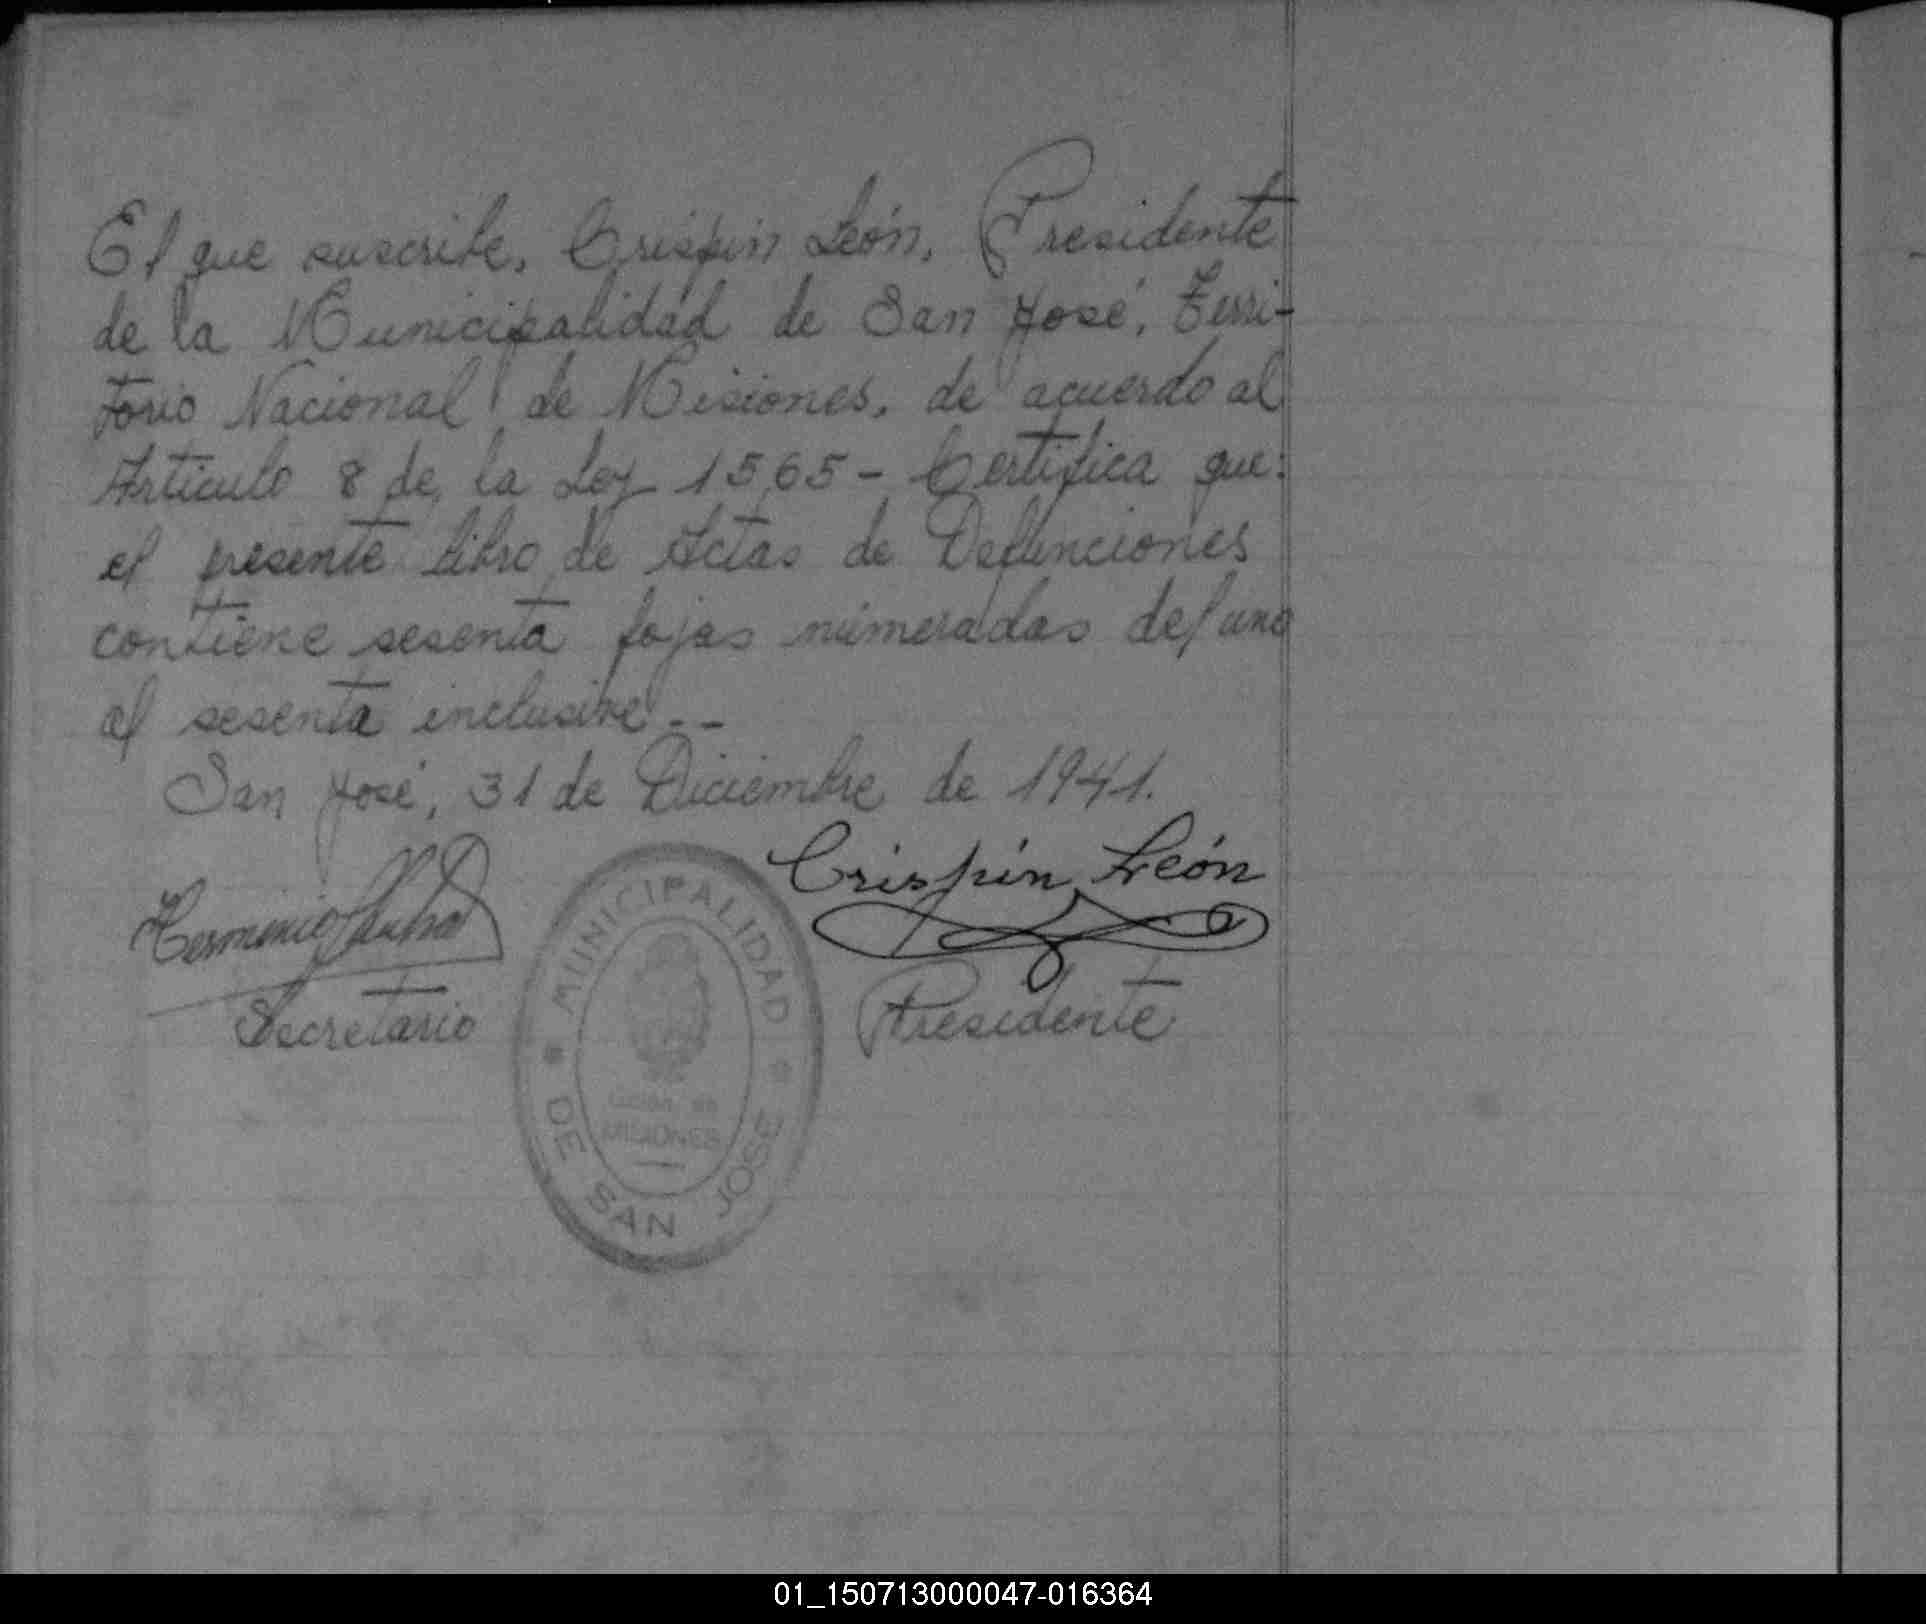 El que suscribe, Crispín León, Presidente
de la Municipalidad de San José, Terri-
torio Nacional de Misiones, de acuerdo al
Artículo 8 de la Ley 1565 - Certifica que:
el presente libro de Actas de Defunciones
contiene sesenta fojas númeradas del uno
al sesenta inclusive.--
San José, 31 de Diciembre de 1941.
Crispín León
Herminio
Secretario
Presidente
MUNICIPALIDAD
MISIONES
DE SAN JOSE
01_150713000047-016364